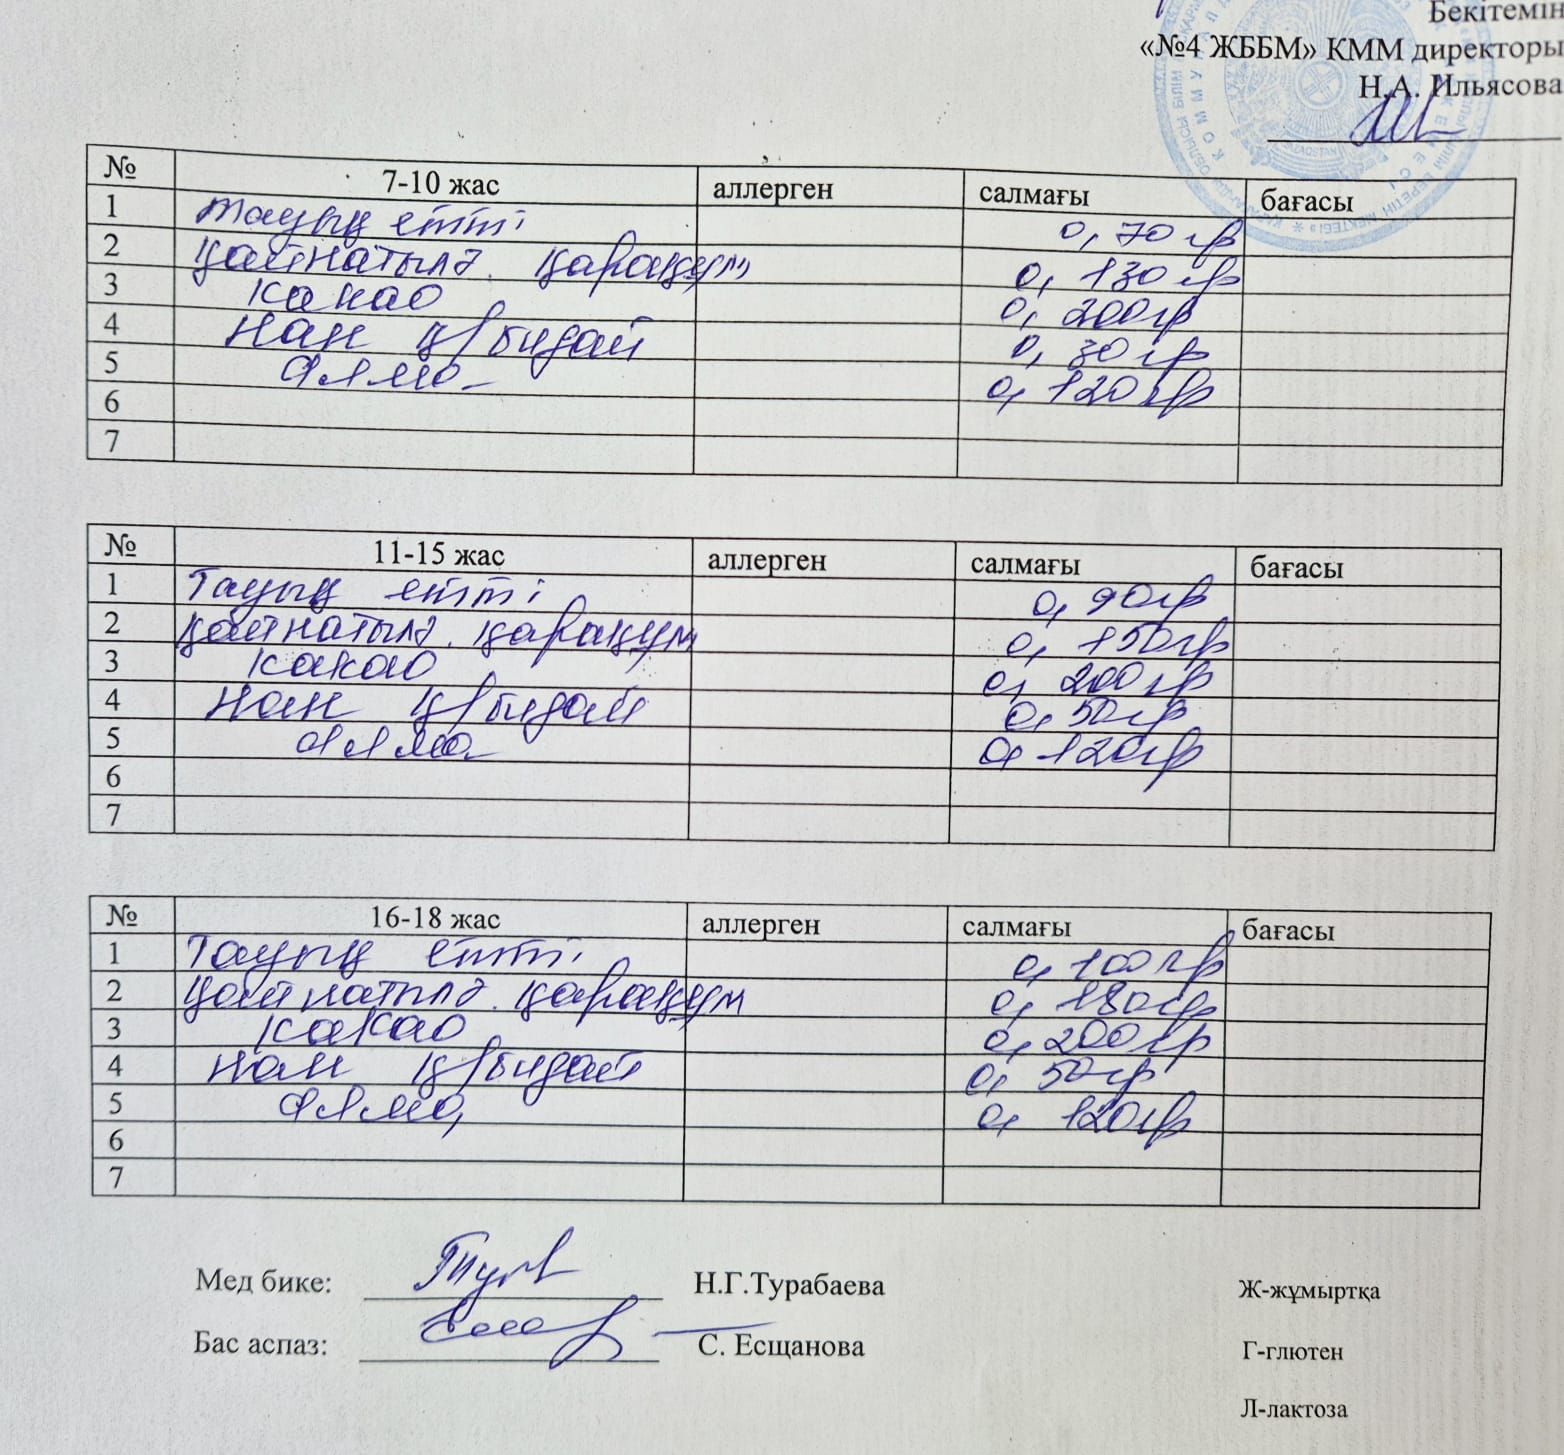 Бекітемін
«№4 ЖББМ» КММ директоры
Н.А. Ильясова
№ 7-10 жас аллерген салмағы бағасы
1 тауық етті 0,70 гр
2 қайнатылғ. қарақұм 0,130 гр
3 какао 0,200 гр
4 нан қ/бидай 0,30 гр
5 алма 0,120 гр
6
7
№ 11-15 жас аллерген салмағы бағасы
1 Тауық етті 0,90 гр
2 қайнатылғ. қарақұм 0,150 гр
3 какао 0,200 гр
4 нан қ/бидай 0,50 гр
5 алма 0,120 гр
6
7
№ 16-18 жас аллерген салмағы бағасы
1 Тауық етті 0,100 гр
2 қайнатылғ. қарақұм 0,180 гр
3 какао 0,200 гр
4 нан қ/бидай 0,50 гр
5 алма 0,120 гр
6
7
Мед бике: Н.Г.Турабаева Ж-жұмыртқа
Бас аспаз: С. Есщанова Г-глютен
Л-лактоза